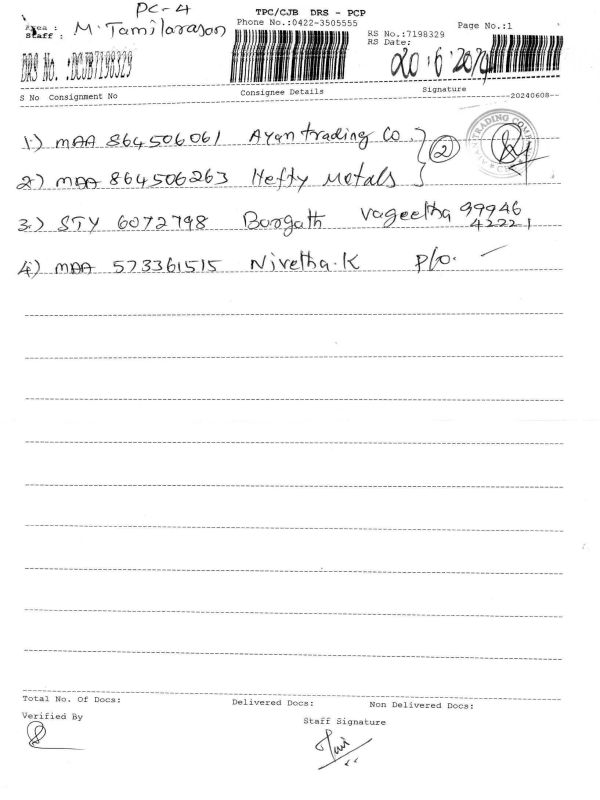 PC-4
TPC/CJB DRS - PCP
Area :
Staff : M. Tamilarason
Phone No.:0422-3505555
Page No.:1
RS No.:7198329
RS Date: 20·6·2024
DRS No. :DCJB7198329
S No Consignment No Consignee Details Signature
20240608
1.) MAA 864506061 Ayan trading Co. } (2)
TRADING COMP
2) MAA 864506263 Hefty Metals
3.) STY 6072798 Bargath Vageetha 99946
42221
4) MAA 573361515 Nivetha.K P/o.
Total No. Of Docs: Delivered Docs: Non Delivered Docs:
Verified By Staff Signature